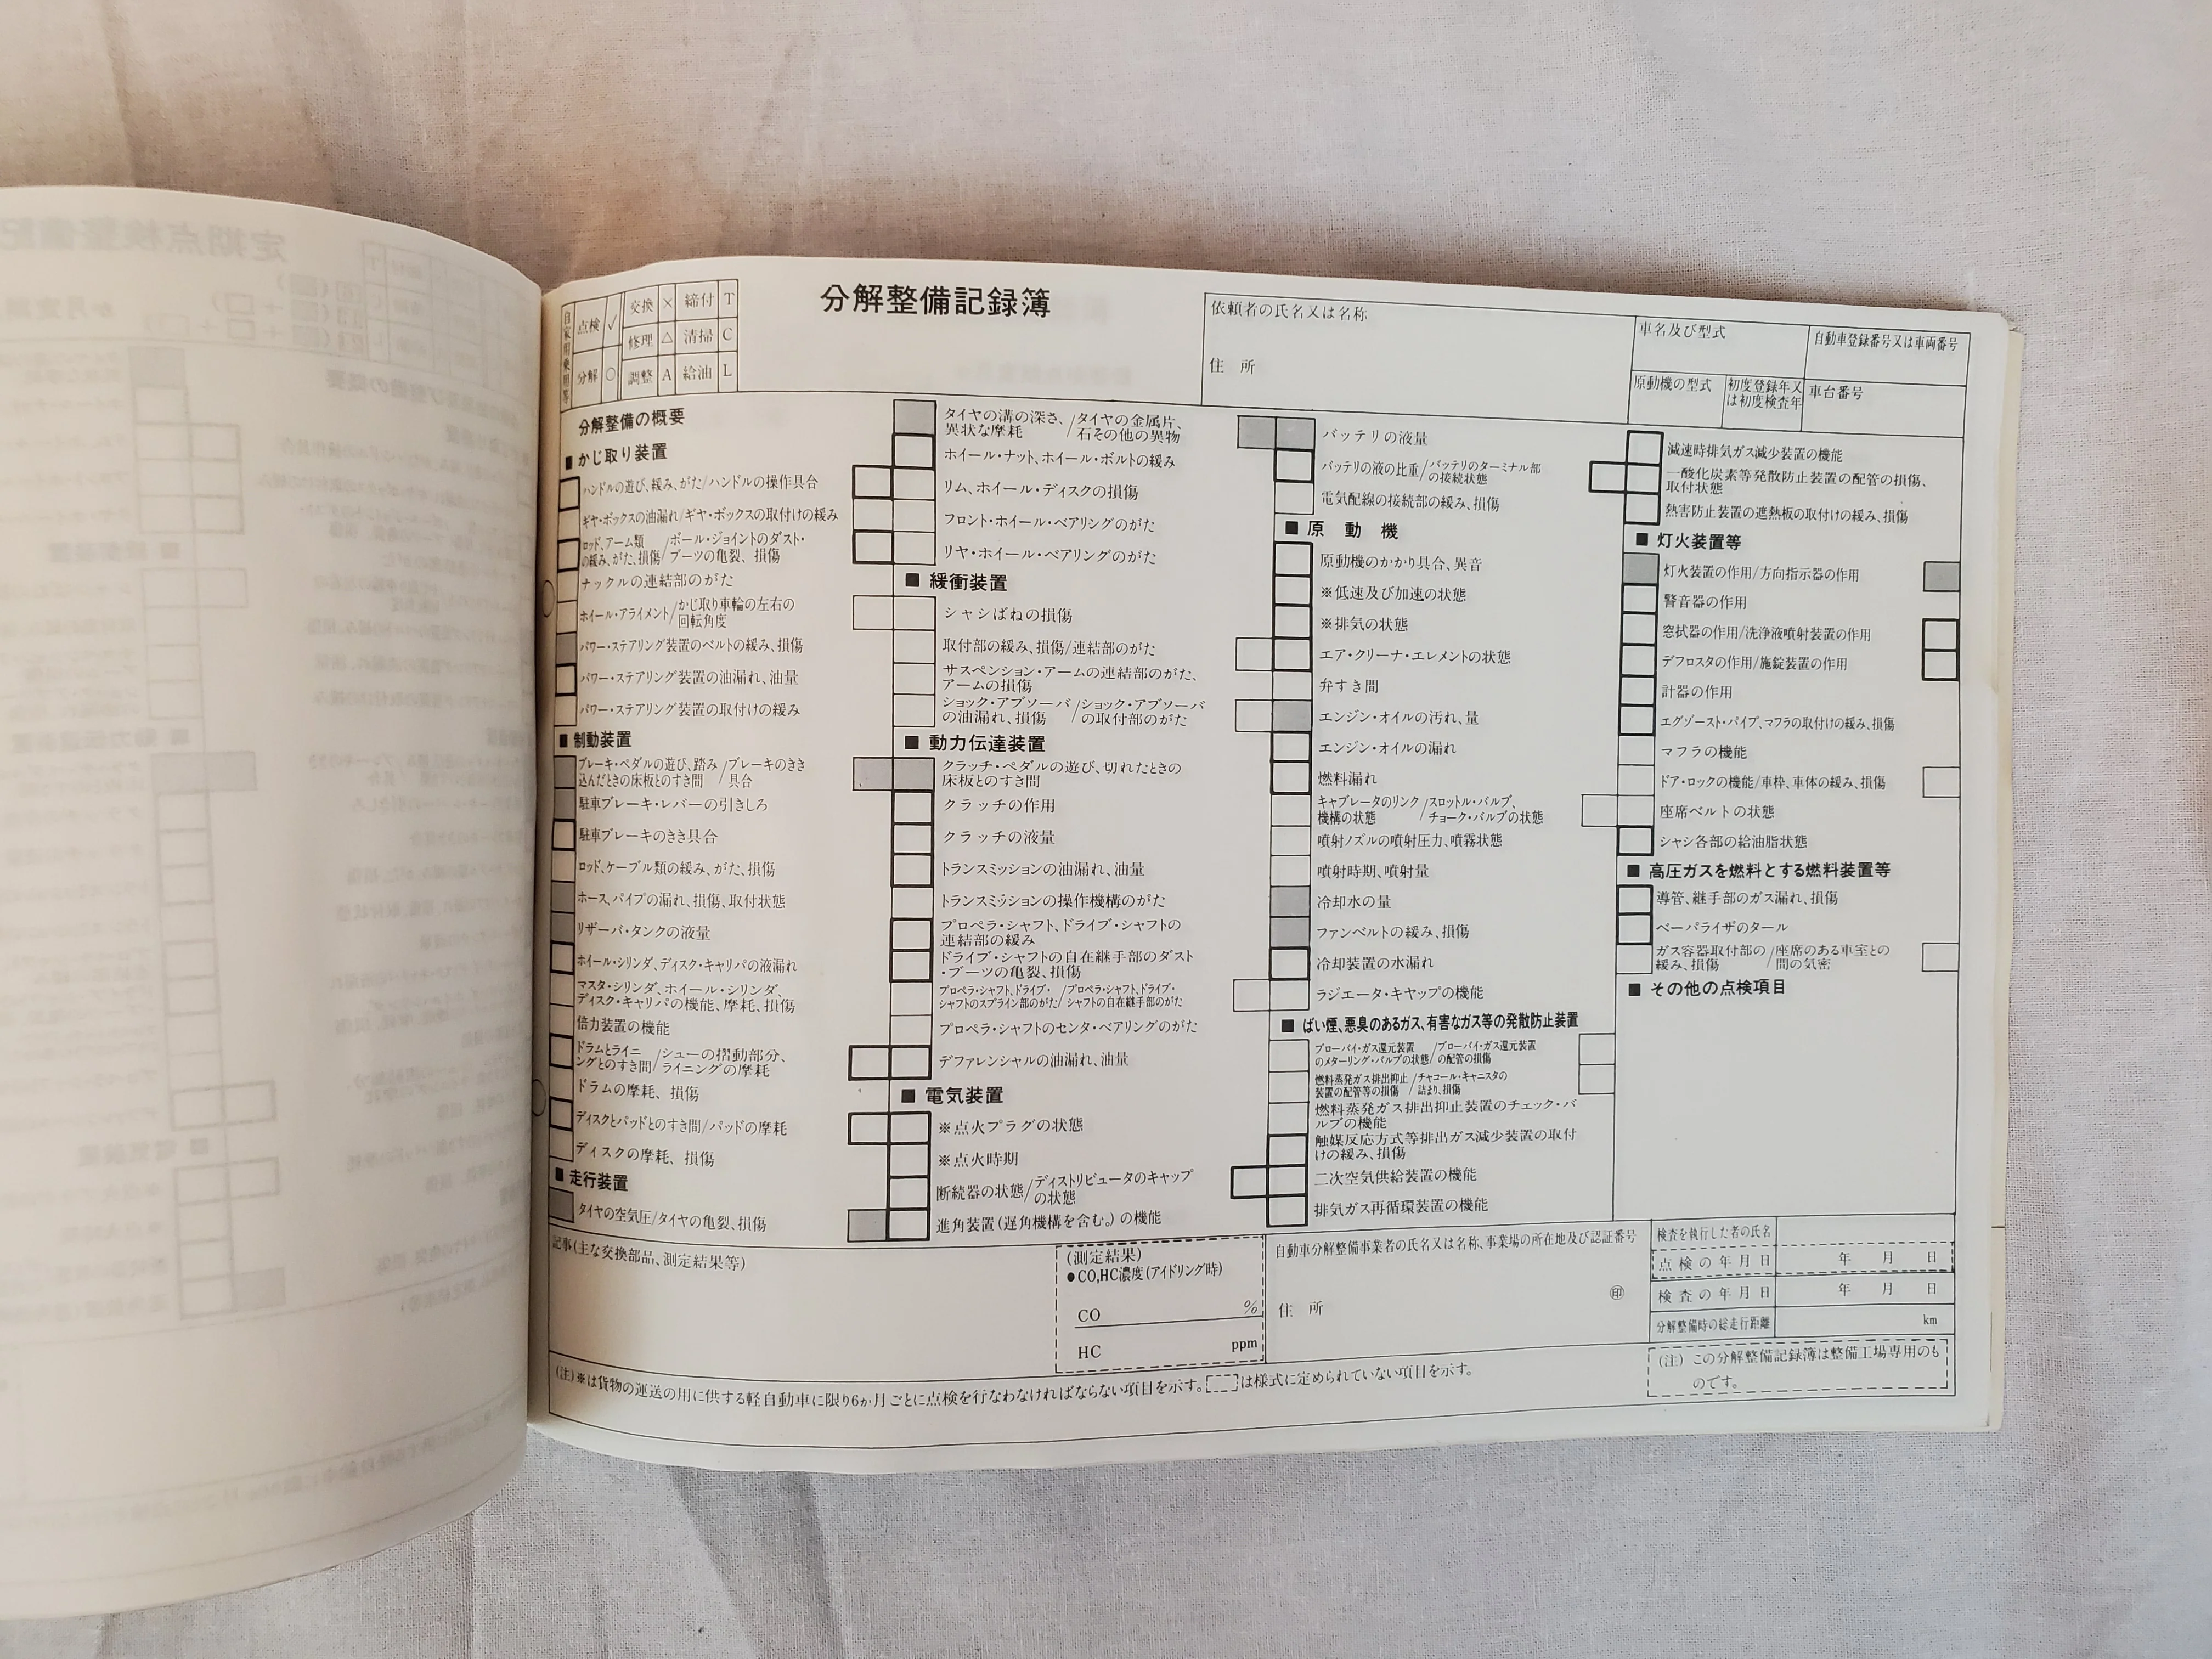 分解整備記録簿
自家用乗用等
点検 ✓ 交換 × 締付 T
修理 △ 清掃 C
分解 ○ 調整 A 給油 L
依頼者の氏名又は名称
住 所
車名及び型式
自動車登録番号又は車両番号
原動機の型式
初度登録年又
は初度検査年
車台番号
分解整備の概要
■ かじ取り装置
ハンドルの遊び、緩み、がた/ハンドルの操作具合
ギヤ・ボックスの油漏れ/ギヤ・ボックスの取付けの緩み
ロッド、アーム類の緩み、がた、損傷/ボール・ジョイントのダスト・ブーツの亀裂、損傷
ナックルの連結部のがた
ホイール・アライメント/かじ取り車輪の左右の回転角度
パワー・ステアリング装置のベルトの緩み、損傷
パワー・ステアリング装置の油漏れ、油量
パワー・ステアリング装置の取付けの緩み
■ 制動装置
ブレーキ・ペダルの遊び、踏み込んだときの床板とのすき間/ブレーキのきき具合
駐車ブレーキ・レバーの引きしろ
駐車ブレーキのきき具合
ロッド、ケーブル類の緩み、がた、損傷
ホース、パイプの漏れ、損傷、取付状態
リザーバ・タンクの液量
ホイール・シリンダ、ディスク・キャリパの液漏れ
マスタ・シリンダ、ホイール・シリンダ、
ディスク・キャリパの機能、摩耗、損傷
倍力装置の機能
ドラムとライニングとのすき間/シューの摺動部分、ライニングの摩耗
ドラムの摩耗、損傷
ディスクとパッドとのすき間/パッドの摩耗
ディスクの摩耗、損傷
■ 走行装置
タイヤの空気圧/タイヤの亀裂、損傷
タイヤの溝の深さ、異状な摩耗/タイヤの金属片、石その他の異物
ホイール・ナット、ホイール・ボルトの緩み
リム、ホイール・ディスクの損傷
フロント・ホイール・ベアリングのがた
リヤ・ホイール・ベアリングのがた
■ 緩衝装置
シャシばねの損傷
取付部の緩み、損傷/連結部のがた
サスペンション・アームの連結部のがた、
アームの損傷
ショック・アブソーバの油漏れ、損傷/ショック・アブソーバの取付部のがた
■ 動力伝達装置
クラッチ・ペダルの遊び、切れたときの
床板とのすき間
クラッチの作用
クラッチの液量
トランスミッションの油漏れ、油量
トランスミッションの操作機構のがた
プロペラ・シャフト、ドライブ・シャフトの
連結部の緩み
ドライブ・シャフトの自在継手部のダスト
・ブーツの亀裂、損傷
プロペラ・シャフト、ドライブ・シャフトのスプライン部のがた/プロペラ・シャフト、ドライブ・シャフトの自在継手部のがた
プロペラ・シャフトのセンタ・ベアリングのがた
デファレンシャルの油漏れ、油量
■ 電気装置
※点火プラグの状態
※点火時期
断続器の状態/ディストリビュータのキャップの状態
進角装置(遅角機構を含む。)の機能
バッテリの液量
バッテリの液の比重/バッテリのターミナル部の接続状態
電気配線の接続部の緩み、損傷
■ 原 動 機
原動機のかかり具合、異音
※低速及び加速の状態
※排気の状態
エア・クリーナ・エレメントの状態
弁すき間
エンジン・オイルの汚れ、量
エンジン・オイルの漏れ
燃料漏れ
キャブレータのリンク機構の状態/スロットル・バルブ、チョーク・バルブの状態
噴射ノズルの噴射圧力、噴霧状態
噴射時期、噴射量
冷却水の量
ファンベルトの緩み、損傷
冷却装置の水漏れ
ラジエータ・キャップの機能
■ ばい煙、悪臭のあるガス、有害なガス等の発散防止装置
ブローバイ・ガス還元装置のメターリング・バルブの状態/ブローバイ・ガス還元装置の配管の損傷
燃料蒸発ガス排出抑止装置の配管等の損傷/チャコール・キャニスタの詰まり、損傷
燃料蒸発ガス排出抑止装置のチェック・バ
ルブの機能
触媒反応方式等排出ガス減少装置の取付
けの緩み、損傷
二次空気供給装置の機能
排気ガス再循環装置の機能
減速時排気ガス減少装置の機能
一酸化炭素等発散防止装置の配管の損傷、
取付状態
熱害防止装置の遮熱板の取付けの緩み、損傷
■ 灯火装置等
灯火装置の作用/方向指示器の作用
警音器の作用
窓拭器の作用/洗浄液噴射装置の作用
デフロスタの作用/施錠装置の作用
計器の作用
エグゾースト・パイプ、マフラの取付けの緩み、損傷
マフラの機能
ドア・ロックの機能/車枠、車体の緩み、損傷
座席ベルトの状態
シャシ各部の給油脂状態
■ 高圧ガスを燃料とする燃料装置等
導管、継手部のガス漏れ、損傷
ベーパライザのタール
ガス容器取付部の緩み、損傷/座席のある車室との間の気密
■ その他の点検項目
記事(主な交換部品、測定結果等)
(測定結果)
●CO,HC濃度(アイドリング時)
CO %
HC ppm
自動車分解整備事業者の氏名又は名称、事業場の所在地及び認証番号
㊞
住 所
検査を執行した者の氏名
点検の年月日 年 月 日
検査の年月日 年 月 日
分解整備時の総走行距離 km
(注)※は貨物の運送の用に供する軽自動車に限り6か月ごとに点検を行なわなければならない項目を示す。[ ]は様式に定められていない項目を示す。
(注) この分解整備記録簿は整備工場専用のも
のです。